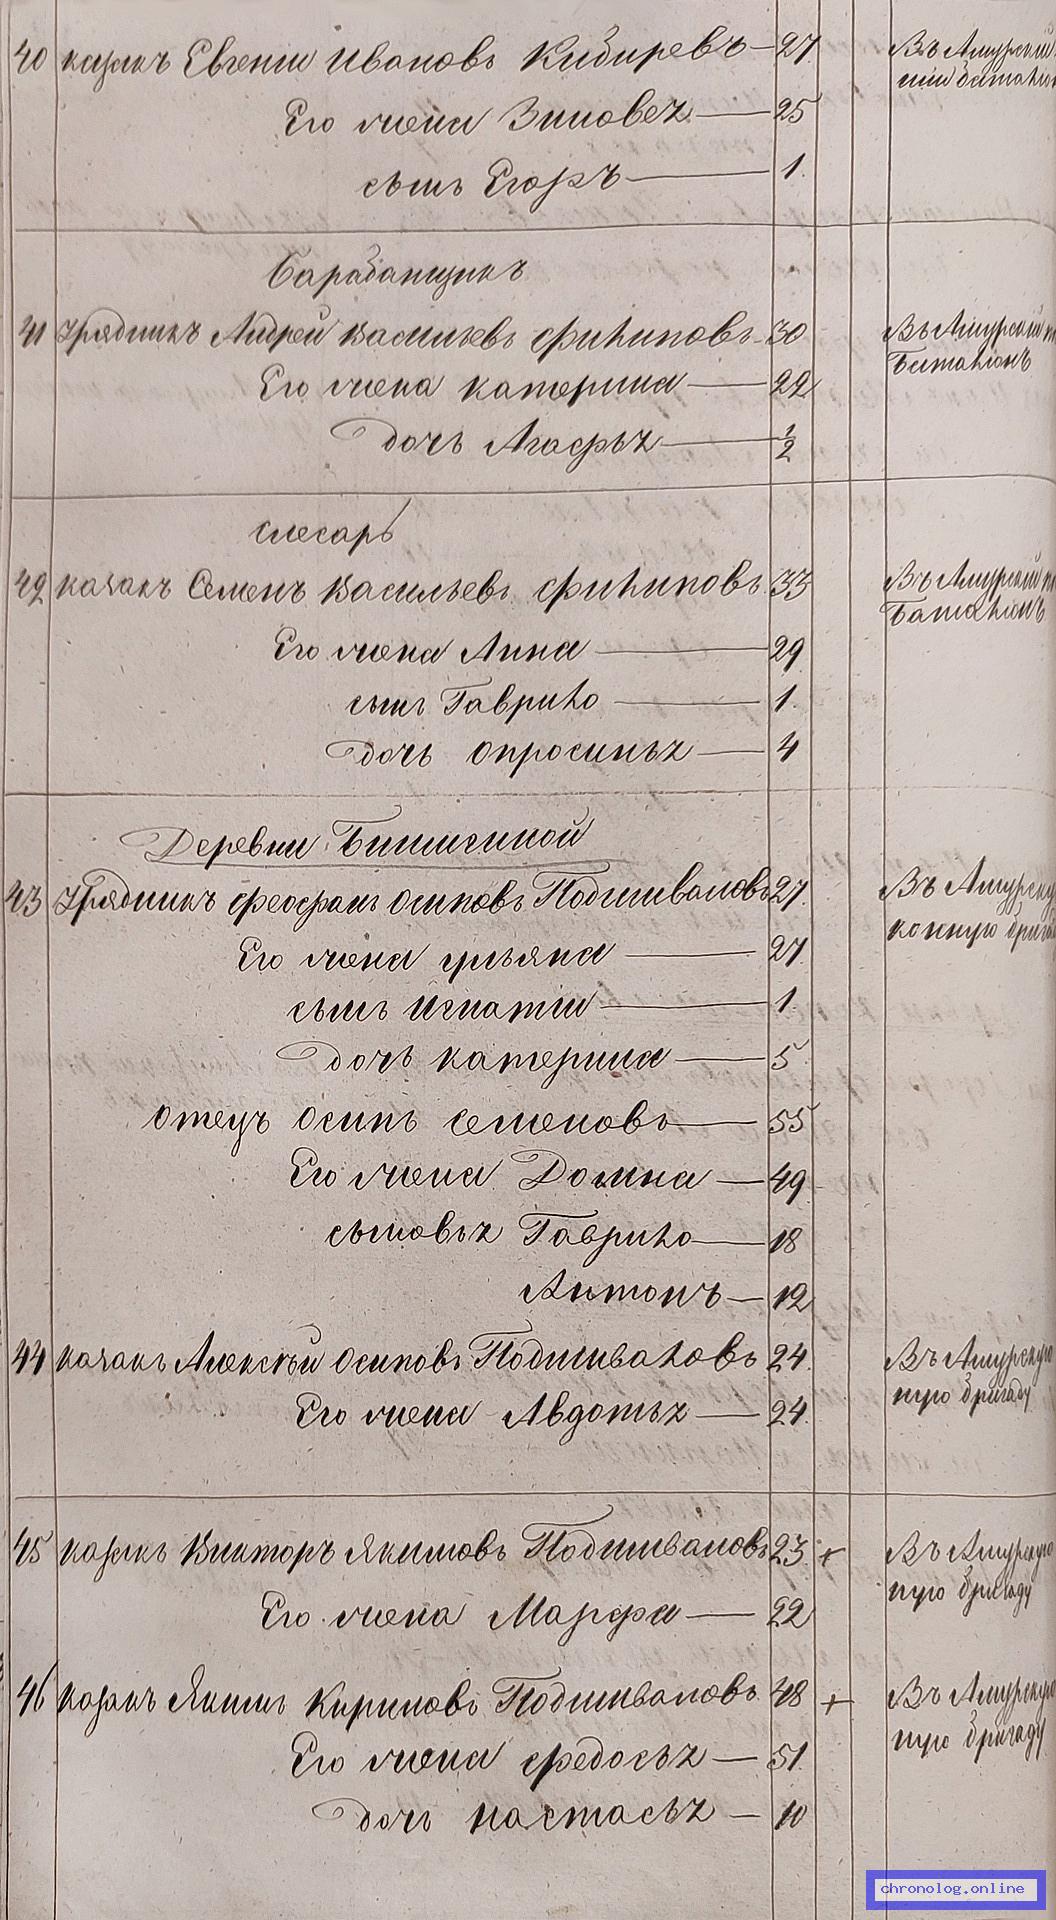 40 казакъ Евгении Ивановъ Кибиревъ — 27 Въ Амурский
баталіон
Его жена Зиновея — 25
сынъ Егоръ — 1
Барабанщикъ
41 Урядникъ Андреи Васильевъ Филиповъ — 30 Въ Амурский
Баталіонъ
Его жена катерина — 22
дочь Агафья — 1/2
слесарь
42 казакъ Семенъ Васильевъ Филиповъ 33 Въ Амурский
Баталіонъ
Его жена Анна — 29
сынъ Гаврило — 1
дочь опросинья — 4
Деревни
43 Урядникъ феофанъ осиповъ Подшиваловъ 27 Въ Амурску
конную брига
Его жена ульяна — 27
сынъ Игнатіи — 1
дочь катерина — 5
отецъ осипъ семеновъ — 55
Его жена Домна — 49
сыновья Гаврило — 18
Антонъ — 12
44 казакъ Алексѣи осиповъ Подшиваловъ 24 Въ Амурскую
ную бригаду
Его жена Авдотья — 24
45 казакъ Викторъ Якимовъ Подшиваловъ 23 + Въ Амурскую
ную бригаду
Его жена Марфа — 22
46 казакъ Якимъ Кириловъ Подшиваловъ 48 + Въ Амурскую
ную бригаду
Его жена федосья — 51
дочь настасья — 10
chronolog.online